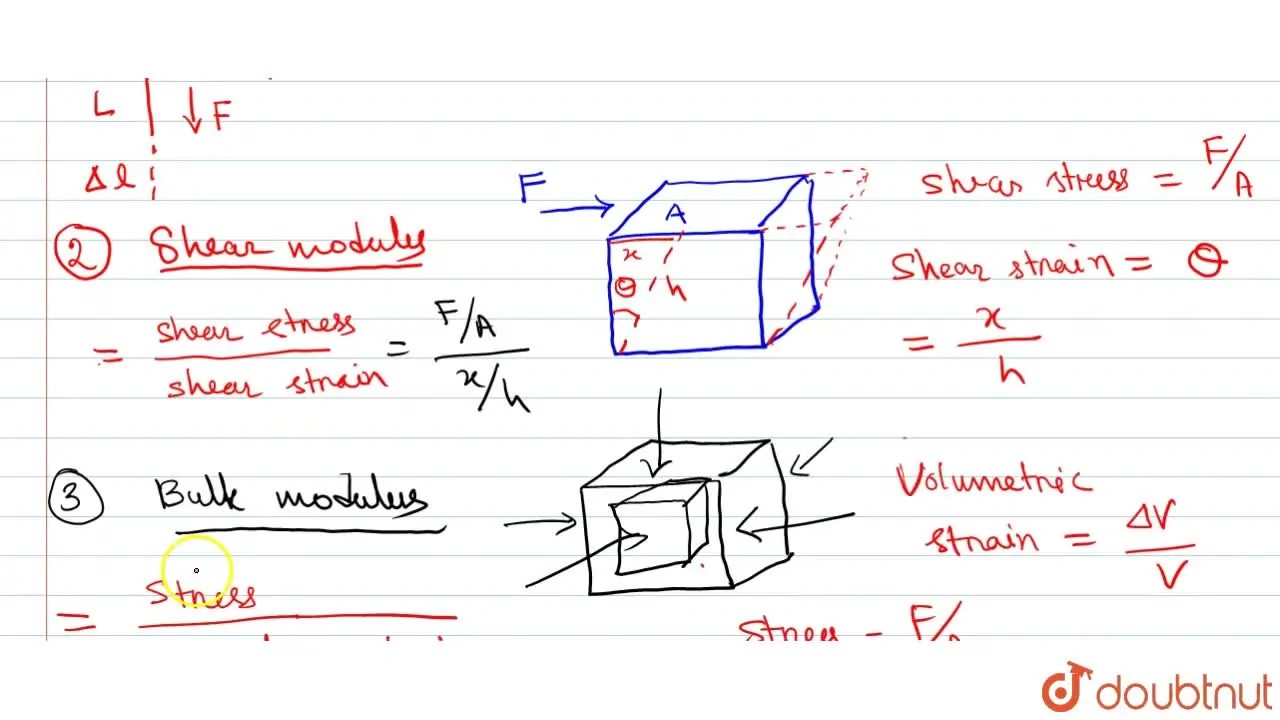 L
F
Δl
F
A
shear stress = F/A
② Shear modulus
x
θ h
Shear strain = θ
= shear stress / shear strain = F/A / x/h
= x / h
③ Bulk modulus
Volumetric
strain = ΔV / V
= Stress
stress = F/
doubtnut